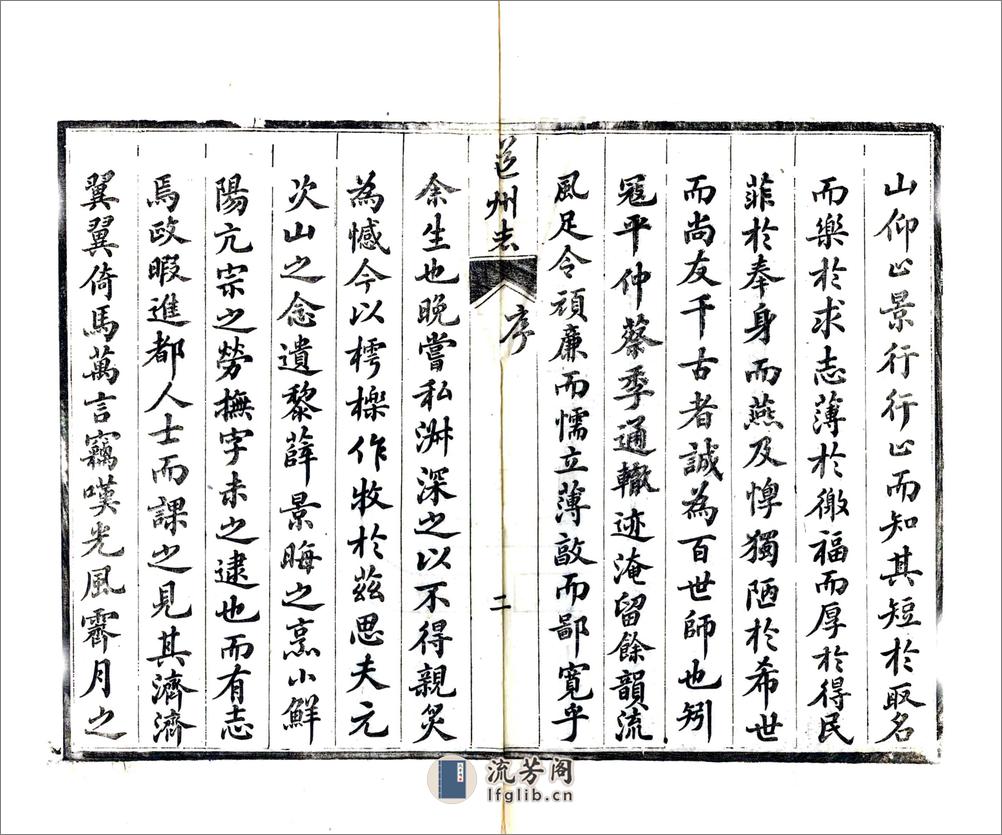 山仰止景行行止而知其短於取名
而樂於求志薄於徼福而厚於得民
菲於奉身而燕及惸獨陋於希世
而尚友千古者誠為百世師也矧
寇平仲蔡季通轍迹淹留餘韻流
風足令頑廉而懦立薄敦而鄙寬乎
道州志
序
二
余生也晚嘗私淑深之以不得親炙
為憾今以樗櫟作牧於茲思夫元
次山之念遺黎薛景晦之烹小鮮
陽亢宗之勞撫字未之逮也而有志
焉政暇進都人士而課之見其濟濟
翼翼倚馬萬言竊嘆光風霽月之
流芳阁
lfglib.cn